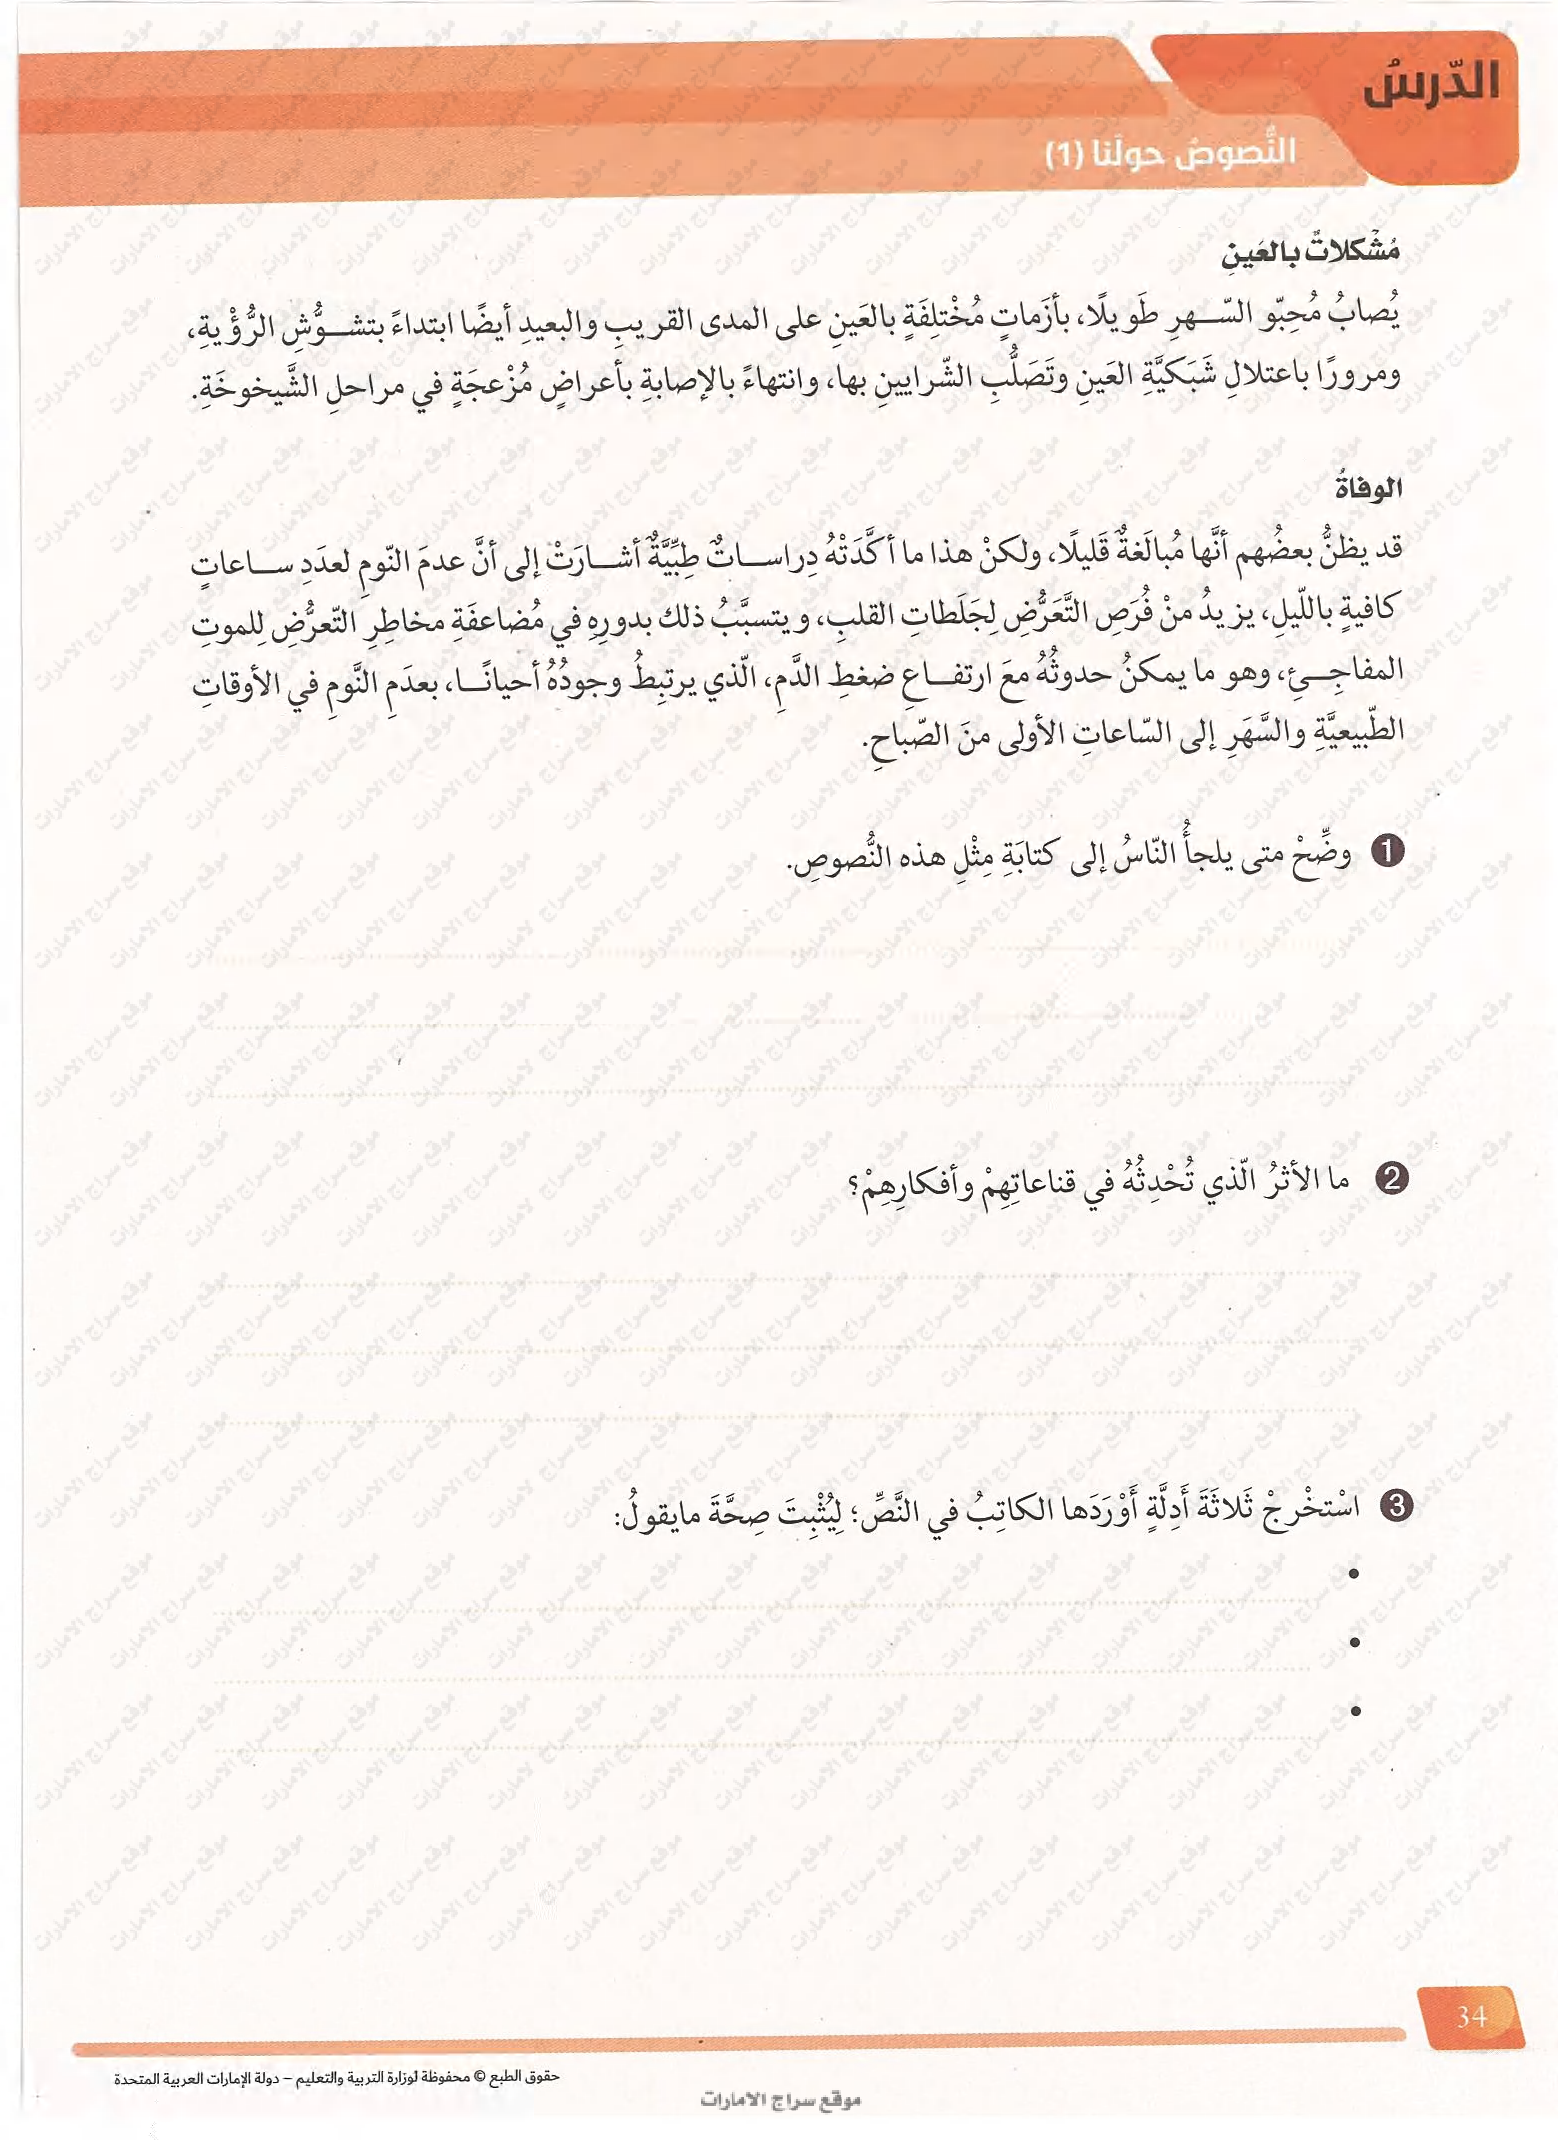 الدّرسُ
النُّصوصُ حولَنا (1)
مُشْكلاتٌ بالعَينِ
يُصابُ مُحِبّو السّهرِ طَويلًا، بأزَماتٍ مُخْتلِفَةٍ بالعَينِ على المدى القريبِ والبعيدِ أيضًا ابتداءً بتشوُّشِ الرُّؤْيةِ،
ومرورًا باعتلالِ شَبَكيَّةِ العَينِ وتَصَلُّبِ الشّرايينِ بها، وانتهاءً بالإصابةِ بأعراضٍ مُزْعجَةٍ في مراحلِ الشَّيخوخَةِ.
الوفاةُ
قد يظنُّ بعضُهم أنَّها مُبالَغةٌ قَليلًا، ولكنْ هذا ما أكَّدَتْهُ دِراساتٌ طِبِّيَّةٌ أشارَتْ إلى أنَّ عدمَ النّومِ لعدَدِ ساعاتٍ
كافيةٍ باللّيلِ، يزيدُ منْ فُرَصِ التَّعَرُّضِ لِجَلَطاتِ القلبِ، ويتسبَّبُ ذلك بدورِهِ في مُضاعفَةِ مخاطِرِ التّعرُّضِ لِلموتِ
المفاجِئِ، وهو ما يمكنُ حدوثُهُ معَ ارتفاعِ ضغطِ الدَّمِ، الّذي يرتبِطُ وجودُهُ أحيانًا، بعدَمِ النَّومِ في الأوقاتِ
الطّبيعيَّةِ والسَّهَرِ إلى السّاعاتِ الأولى منَ الصّباحِ.
1 وضِّحْ متى يلجأُ النّاسُ إلى كتابَةِ مِثْلِ هذه النُّصوصِ.
2 ما الأثرُ الّذي تُحْدِثُهُ في قناعاتِهِمْ وأفكارِهِمْ؟
3 اسْتخْرجْ ثَلاثَةَ أَدِلَّةٍ أَوْرَدَها الكاتِبُ في النَّصِّ؛ لِيُثْبِتَ صِحَّةَ مايقولُ:
•
•
•
34
حقوق الطبع © محفوظة لوزارة التربية والتعليم – دولة الإمارات العربية المتحدة
موقع سراج الامارات